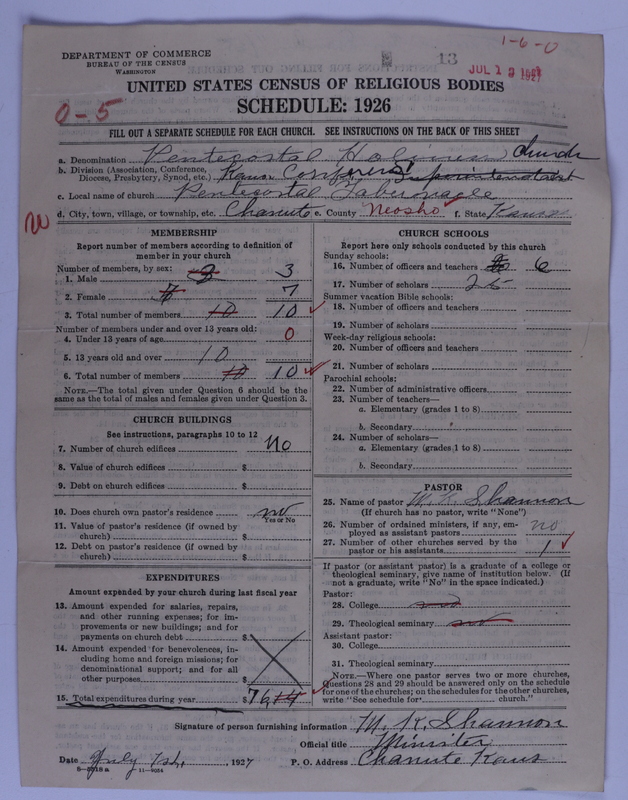 1-6-0
13
JUL 1 1927
DEPARTMENT OF COMMERCE
BUREAU OF THE CENSUS
WASHINGTON
UNITED STATES CENSUS OF RELIGIOUS BODIES
SCHEDULE: 1926
0-5
FILL OUT A SEPARATE SCHEDULE FOR EACH CHURCH. SEE INSTRUCTIONS ON THE BACK OF THIS SHEET
a. Denomination Pentecostal Holiness Church
b. Division (Association, Conference, Diocese, Presbytery, Synod, etc.) Kans Conference
c. Local name of church Pentecostal Tabernacle
d. City, town, village, or township, etc. Chanute e. County Neosho f. State Kans
MEMBERSHIP
Report number of members according to definition of
member in your church
Number of members, by sex:
1. Male 3 3
2. Female 7 7
3. Total number of members 10 10
Number of members under and over 13 years old:
4. Under 13 years of age 0
5. 13 years old and over 10
6. Total number of members 10 10
NOTE.—The total given under Question 6 should be the
same as the total of males and females given under Question 3.
CHURCH BUILDINGS
See instructions, paragraphs 10 to 12
7. Number of church edifices No
8. Value of church edifices $
9. Debt on church edifices $
10. Does church own pastor's residence no
Yes or No
11. Value of pastor's residence (if owned by
church) $
12. Debt on pastor's residence (if owned by
church) $
EXPENDITURES
Amount expended by your church during last fiscal year
13. Amount expended for salaries, repairs,
and other running expenses; for im-
provements or new buildings; and for
payments on church debt $
14. Amount expended for benevolences, in-
cluding home and foreign missions; for
denominational support; and for all
other purposes $
15. Total expenditures during year $76
CHURCH SCHOOLS
Report here only schools conducted by this church
Sunday schools:
16. Number of officers and teachers 6
17. Number of scholars 25
Summer vacation Bible schools:
18. Number of officers and teachers
19. Number of scholars
Week-day religious schools:
20. Number of officers and teachers
21. Number of scholars
Parochial schools:
22. Number of administrative officers
23. Number of teachers—
a. Elementary (grades 1 to 8)
b. Secondary
24. Number of scholars—
a. Elementary (grades 1 to 8)
b. Secondary
PASTOR
25. Name of pastor M. K. Shannon
(If church has no pastor, write "None")
26. Number of ordained ministers, if any, em-
ployed as assistant pastors no
27. Number of other churches served by the
pastor or his assistants 1
If pastor (or assistant pastor) is a graduate of a college or
theological seminary, give name of institution below. (If
not a graduate, write "No" in the space indicated.)
Pastor:
28. College no
29. Theological seminary no
Assistant pastor:
30. College
31. Theological seminary
NOTE.—Where one pastor serves two or more churches,
Questions 28 and 29 should be answered only on the schedule
for one of the churches; on the schedules for the other churches,
write "See schedule for church."
Signature of person furnishing information M. K. Shannon
Official title Minister
Date July 1st, 1927 P. O. Address Chanute Kans
11-4034